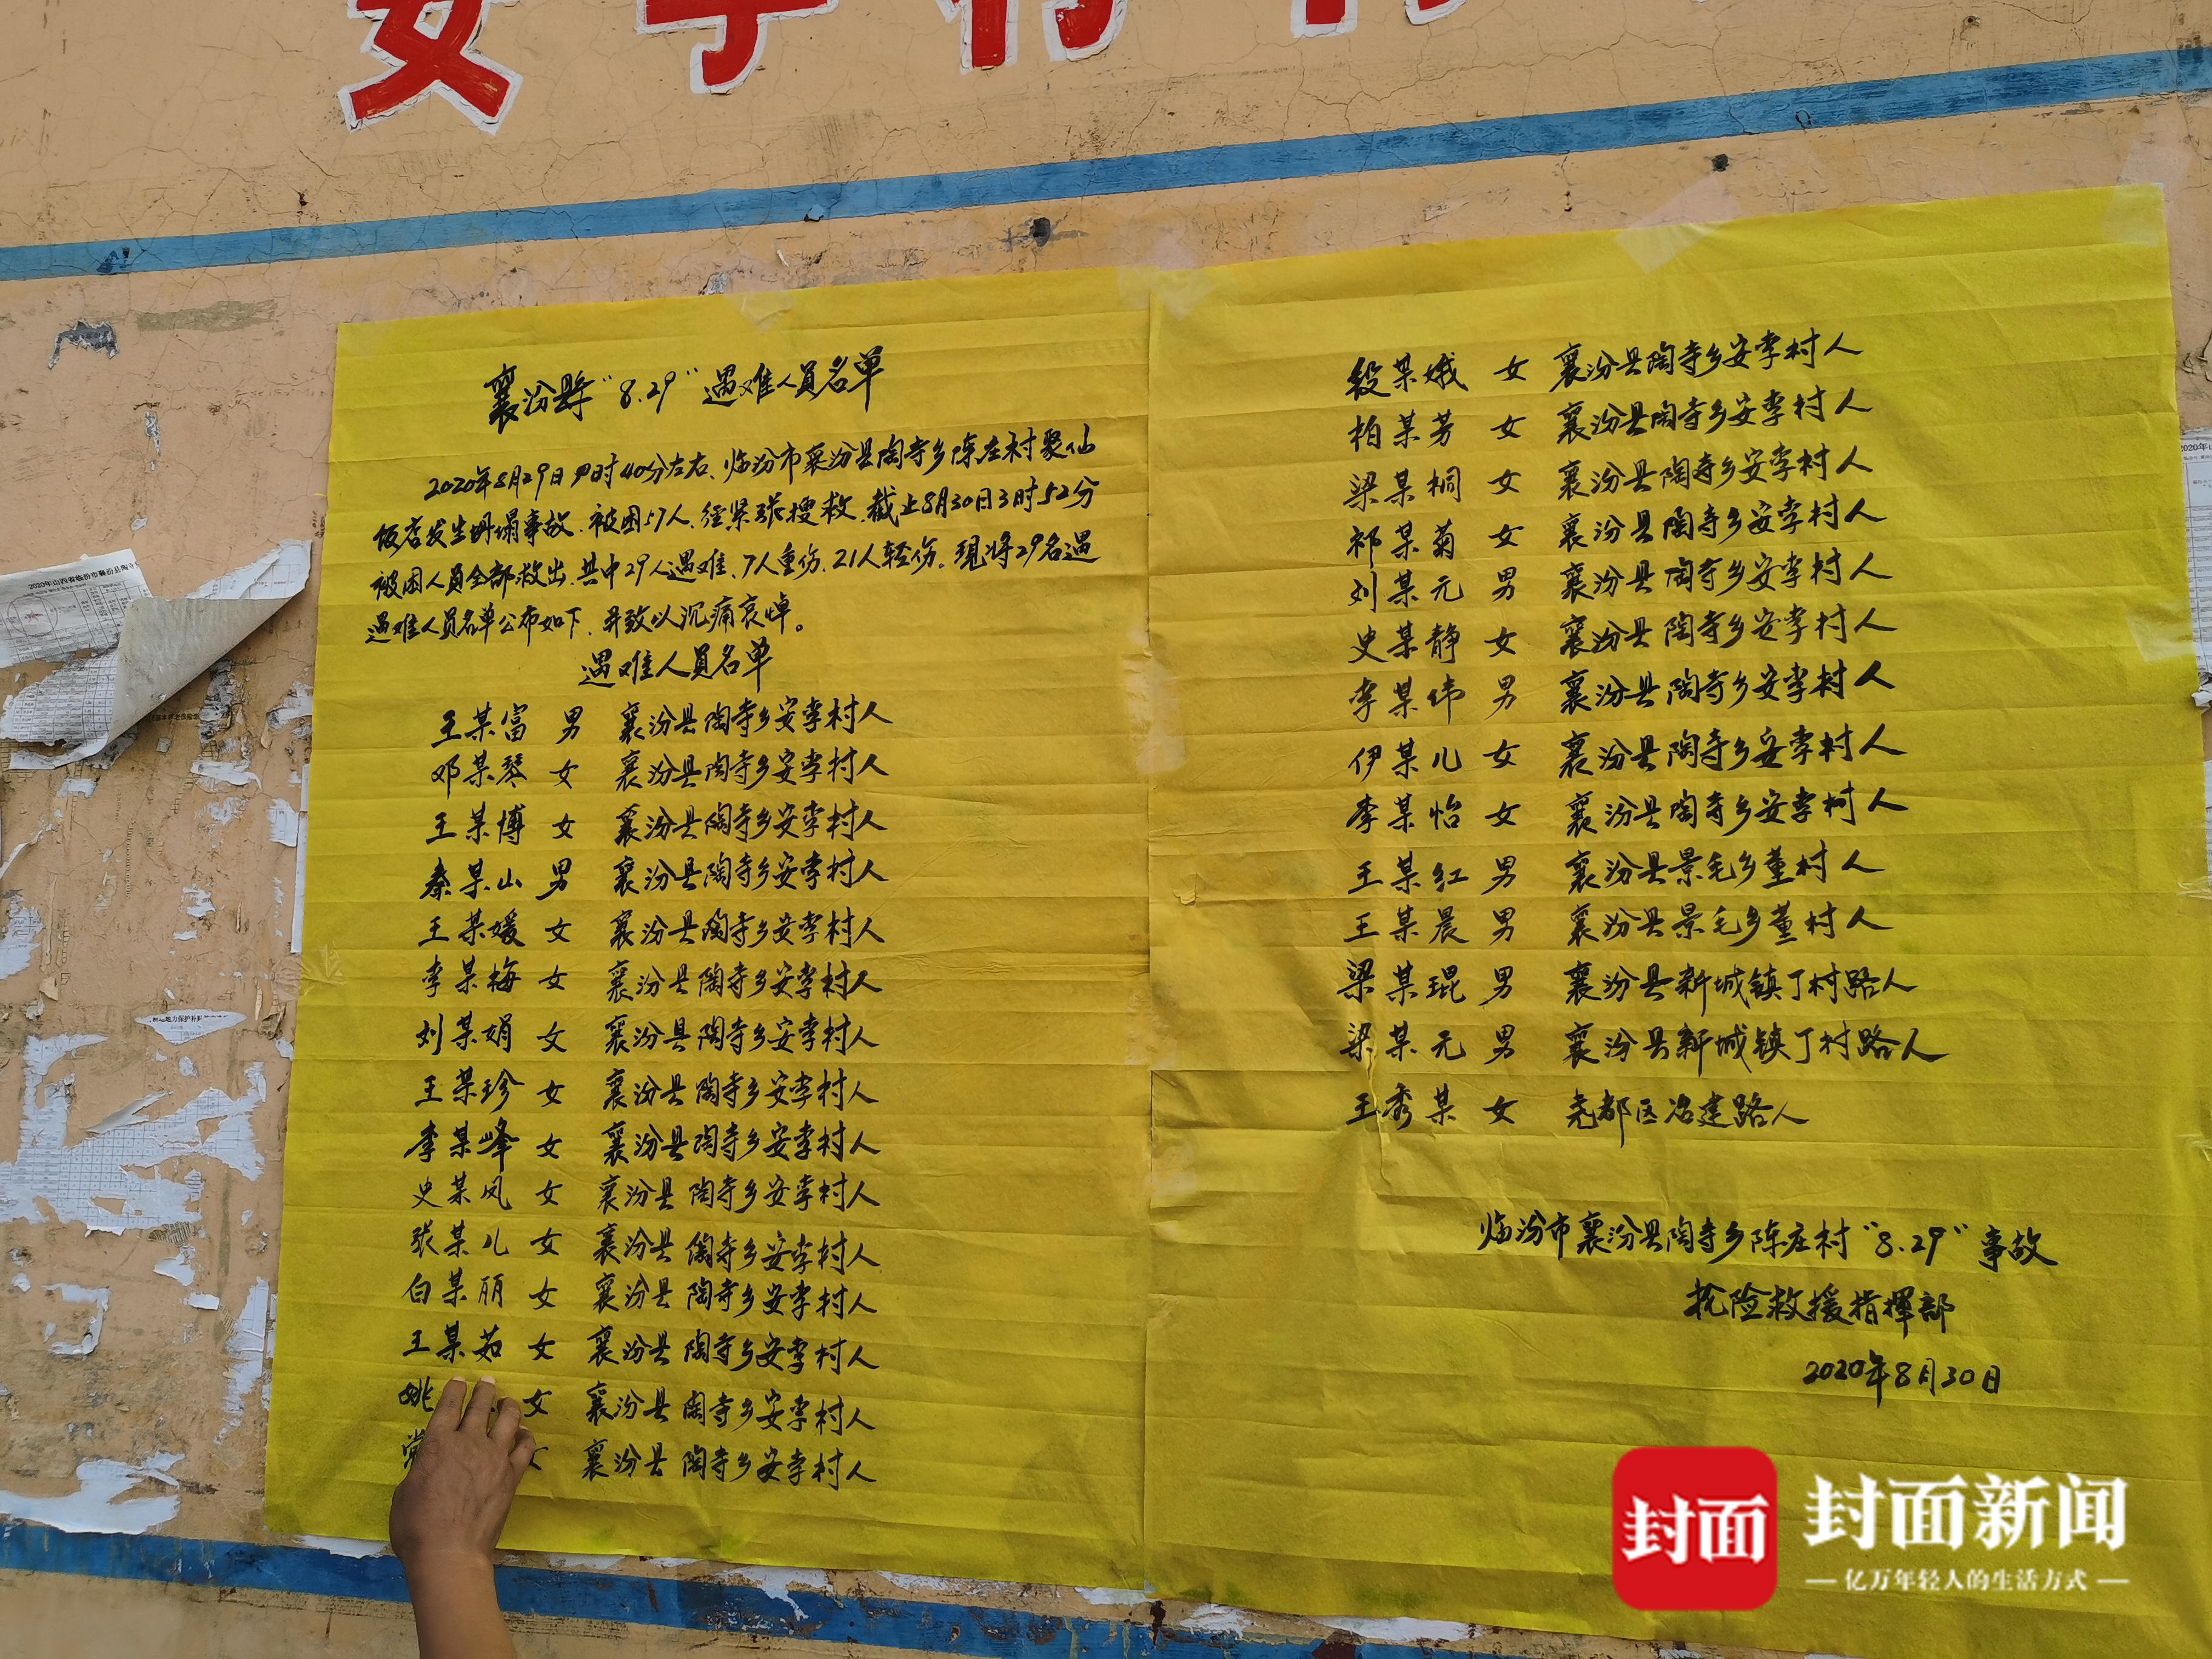 安李村村
襄汾县“8.29”遇难人员名单
2020年8月29日9时40分左右、临汾市襄汾县陶寺乡陈庄村聚仙
饭店发生坍塌事故.被困57人.经紧张搜救.截止8月30日3时52分
被困人员全部救出.其中29人遇难、7人重伤、21人轻伤。现将29名遇
遇难人员名单公布如下、并致以沉痛哀悼。
遇难人员名单
王某富 男 襄汾县陶寺乡安李村人
邓某琴 女 襄汾县陶寺乡安李村人
王某博 女 襄汾县陶寺乡安李村人
秦某山 男 襄汾县陶寺乡安李村人
王某媛 女 襄汾县陶寺乡安李村人
李某梅 女 襄汾县陶寺乡安李村人
刘某娟 女 襄汾县陶寺乡安李村人
王某珍 女 襄汾县陶寺乡安李村人
李某峰 女 襄汾县陶寺乡安李村人
史某凤 女 襄汾县陶寺乡安李村人
张某儿 女 襄汾县陶寺乡安李村人
白某丽 女 襄汾县陶寺乡安李村人
王某茹 女 襄汾县陶寺乡安李村人
姚 女 襄汾县陶寺乡安李村人
女 襄汾县陶寺乡安李村人
段某娥 女 襄汾县陶寺乡安李村人
柏某芳 女 襄汾县陶寺乡安李村人
梁某桐 女 襄汾县陶寺乡安李村人
祁某菊 女 襄汾县陶寺乡安李村人
刘某元 男 襄汾县陶寺乡安李村人
史某静 女 襄汾县陶寺乡安李村人
李某伟 男 襄汾县陶寺乡安李村人
伊某儿 女 襄汾县陶寺乡安李村人
李某怡 女 襄汾县陶寺乡安李村人
王某红 男 襄汾县景毛乡董村人
王某晨 男 襄汾县景毛乡董村人
梁某琨 男 襄汾县新城镇丁村路人
梁某元 男 襄汾县新城镇丁村路人
王秀某 女 尧都区冶建路人
临汾市襄汾县陶寺乡陈庄村“8.29”事故
抢险救援指挥部
2020年8月30日
2020年山西省临汾市襄汾县陶寺
封面
封面新闻
亿万年轻人的生活方式